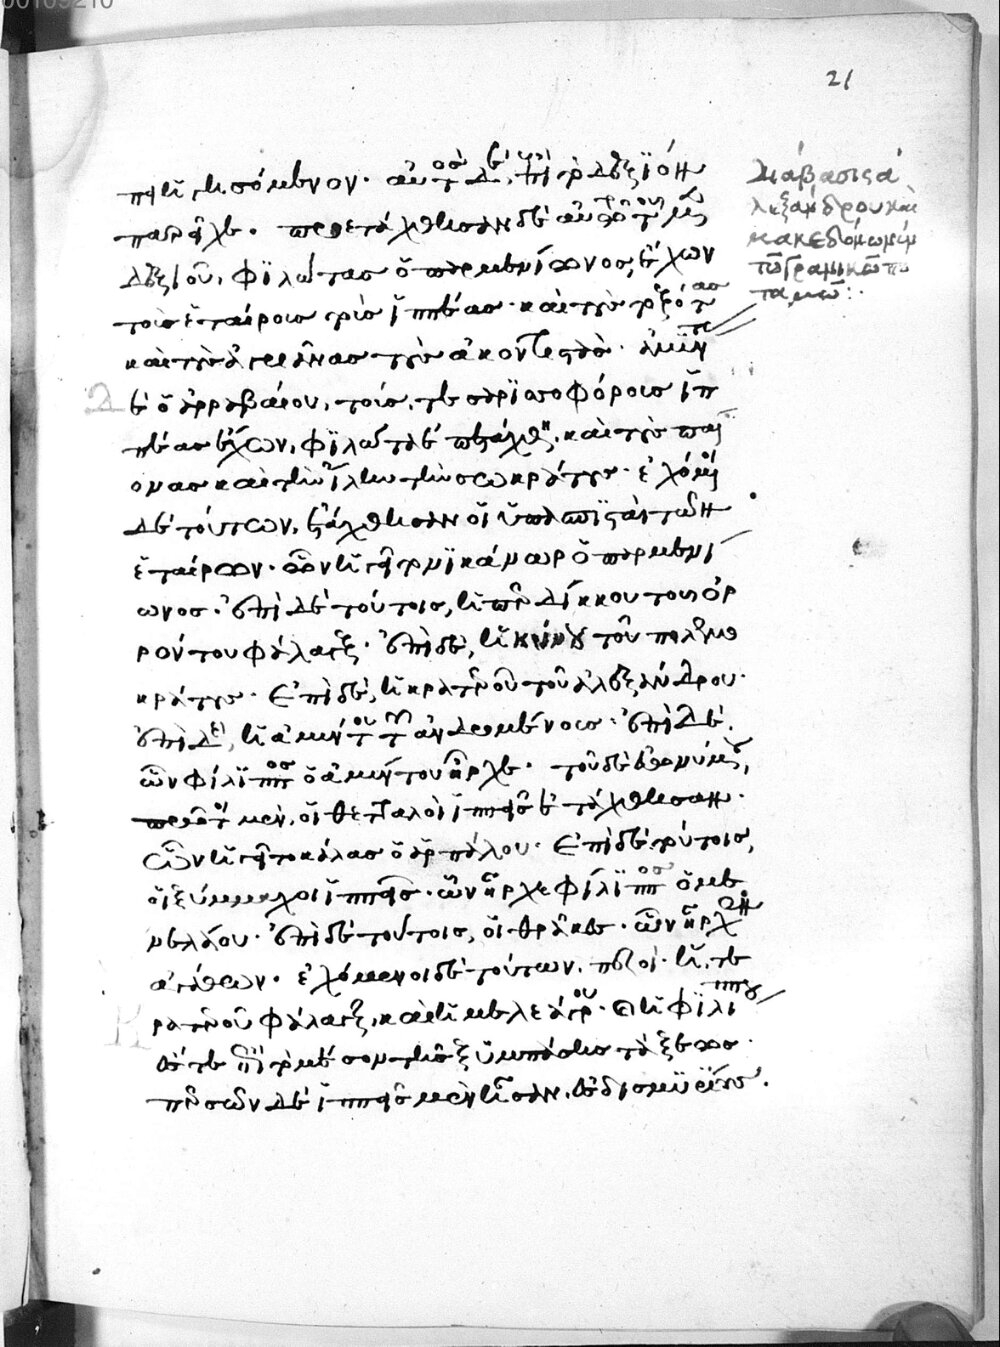 πει ἡγησόμενον· αὐτὸς δὲ ἐπὶ τὸ δεξιὸν
παρῆγε· προετάχθησαν δὲ αὐτῷ τοῦ μὲν
δεξιοῦ, φιλώτας ὁ παρμενίωνος, ἔχων
τοὺς ἑταίρους τοὺς ἱππέας· καὶ τοὺς τοξότας
καὶ τοὺς ἀγριᾶνας τοὺς ἀκοντιστάς· ἀμύντας
δὲ ὁ ἀρραβαίου, τούς τε σαρισσοφόρους ἱπ
πέας ἔχων, φιλώτᾳ ἐπετάχθη, καὶ τοὺς παί
ονας καὶ τὴν ἴλην τὴν σωκράτους· ἐχόμενοι
δὲ τούτων, ἐτάχθησαν οἱ ὑπασπισταὶ τῶν
ἑταίρων· ὧν ἡγεῖτο νικάνωρ ὁ παρμενί
ωνος· ἐπὶ δὲ τούτοις, ἡ περδίκκου τοῦ ὀρ
ρόντου φάλαγξ· ἐπὶ δὲ, ἡ κοίνου τοῦ πολεμο
κράτους· ἐπὶ δὲ, ἡ κρατεροῦ τοῦ ἀλεξάνδρου·
ἐπὶ δὲ, ἡ ἀμύντου τοῦ ἀνδρομένους· ἐπὶ δὲ,
ὧν φίλιππος ὁ ἀμύντου ἦρχε· τοῦ δὲ εὐωνύμου,
πρῶτοι μὲν, οἱ θετταλοὶ ἱππεῖς ἐτάχθησαν·
ὧν ἡγεῖτο κάλας ὁ ἁρπάλου· ἐπὶ δὲ τούτοις,
οἱ ξύμμαχοι ἱππεῖς· ὧν ἦρχε φίλιππος ὁ με
νελάου· ἐπὶ δὲ τούτοις, οἱ θρᾷκες· ὧν ἦρχεν
ἀγάθων· ἐχόμενοι δὲ τούτων, πεζοὶ· ἥ τε
κρατεροῦ φάλαγξ, καὶ ἡ μελεάγρου· καὶ ἡ φιλίππου
ἔς τε ἐπὶ τὸ μέσον τῆς ξυμπάσης τάξεως·
περσῶν δὲ ἱππεῖς μὲν ἦσαν, ἐς δισμυρίους.
διάβασις ἀ
λεξάνδρου καὶ
μακεδόνων ἐν
τῶ γρανικῶ πο
ταμῶ:·
21